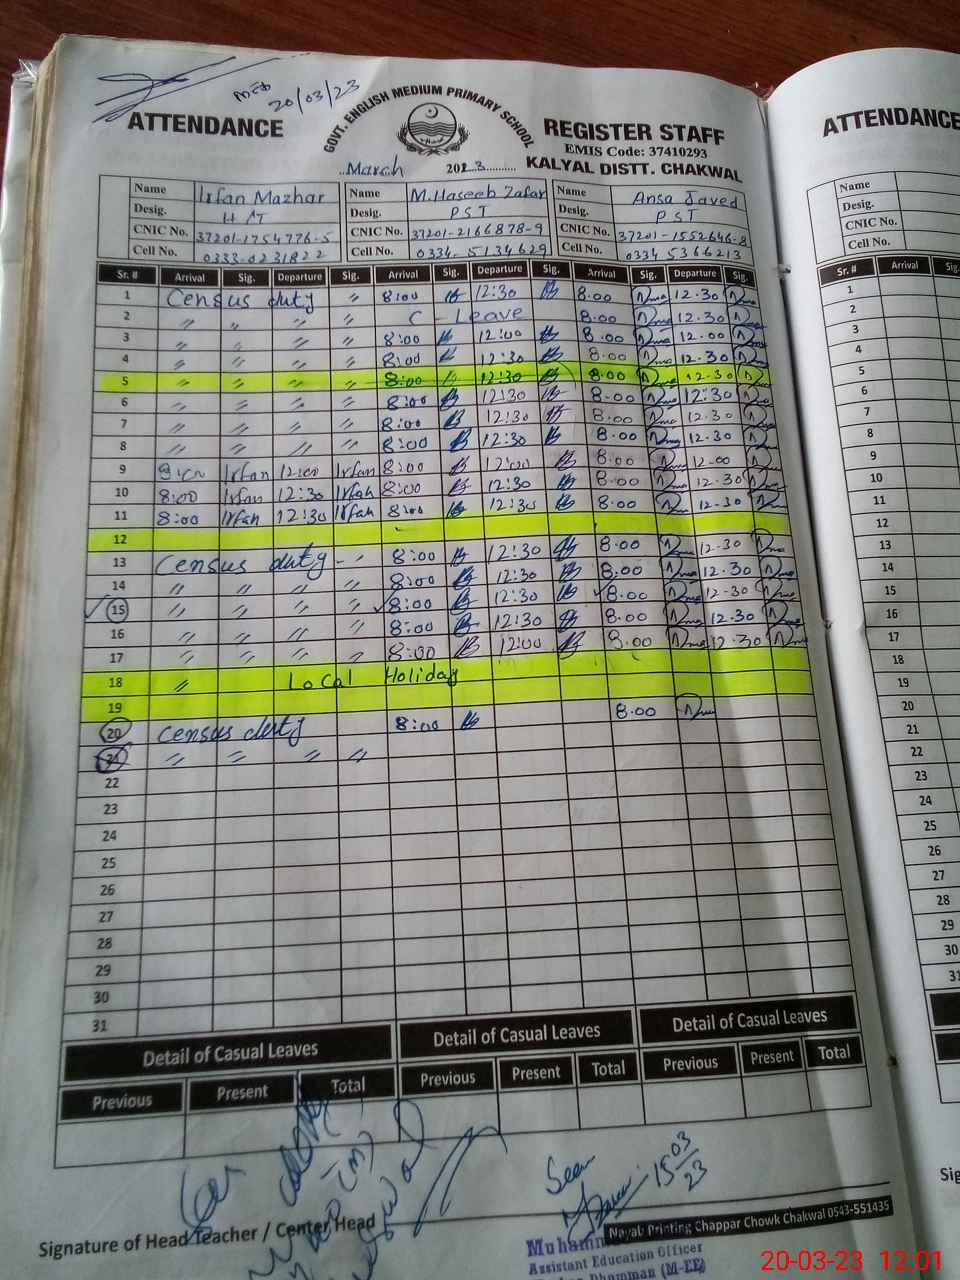 MEA 20/03/23
GOVT. ENGLISH MEDIUM PRIMARY SCHOOL
ATTENDANCE REGISTER STAFF
EMIS Code: 37410293
March 2023 KALYAL DISTT. CHAKWAL
Name Irfan Mazhar Name M.Haseeb Zafar Name Ansa Javed
Desig. HT Desig. PST Desig. PST
CNIC No. 37201-1754776-5 CNIC No. 37201-2166878-9 CNIC No. 37201-1552646-8
Cell No. 0333-0231822 Cell No. 0334-5134629 Cell No. 0334 5366213
Sr. # Arrival Sig. Departure Sig. Arrival Sig. Departure Sig. Arrival Sig. Departure Sig.
1 Census duty " 8:00 12:30 8.00 12.30
2 " " " " C - Leave 8.00 12.30
3 " " " " 8:00 12:00 8.00 12.00
4 " " " " 8:00 12:30 8.00 12.30
5 " " " " 8:00 12:30 8.00 12.30
6 " " " " 8:00 12:30 8.00 12:30
7 " " " " 8:00 12:30 8.00 12.30
8 " " " " 8:00 12:30 8.00 12.30
9 9:00 Irfan 12:00 Irfan 8:00 12:00 8.00 12.00
10 8:00 Irfan 12:30 Irfan 8:00 12:30 8.00 12.30
11 8:00 Irfan 12:30 Irfan 8:00 12:30 8.00 12.30
12
13 Census duty - " 8:00 12:30 8.00 12.30
14 " " " " 8:00 12:30 8.00 12.30
15 " " " " 8:00 12:30 8.00 12.30
16 " " " " 8:00 12:30 8.00 12.30
17 " " " " 8:00 12:00 8.00 12.30
18 " Local Holiday
19
20 Census duty 8:00 8.00
21 " " " "
22
23
24
25
26
27
28
29
30
31
Detail of Casual Leaves Detail of Casual Leaves Detail of Casual Leaves
Previous Present Total Previous Present Total Previous Present Total
Seen
15 03/23
Signature of Head Teacher / Center Head
Nayab Printing Chappar Chowk Chakwal 0543-551435
Assistant Education Officer
Dhamman (M-EE)
ATTENDANCE
Name
Desig.
CNIC No.
Cell No.
Sr. # Arrival
1
2
3
4
5
6
7
8
9
10
11
12
13
14
15
16
17
18
19
20
21
22
23
24
25
26
27
28
29
30
31
20-03-23 12:01